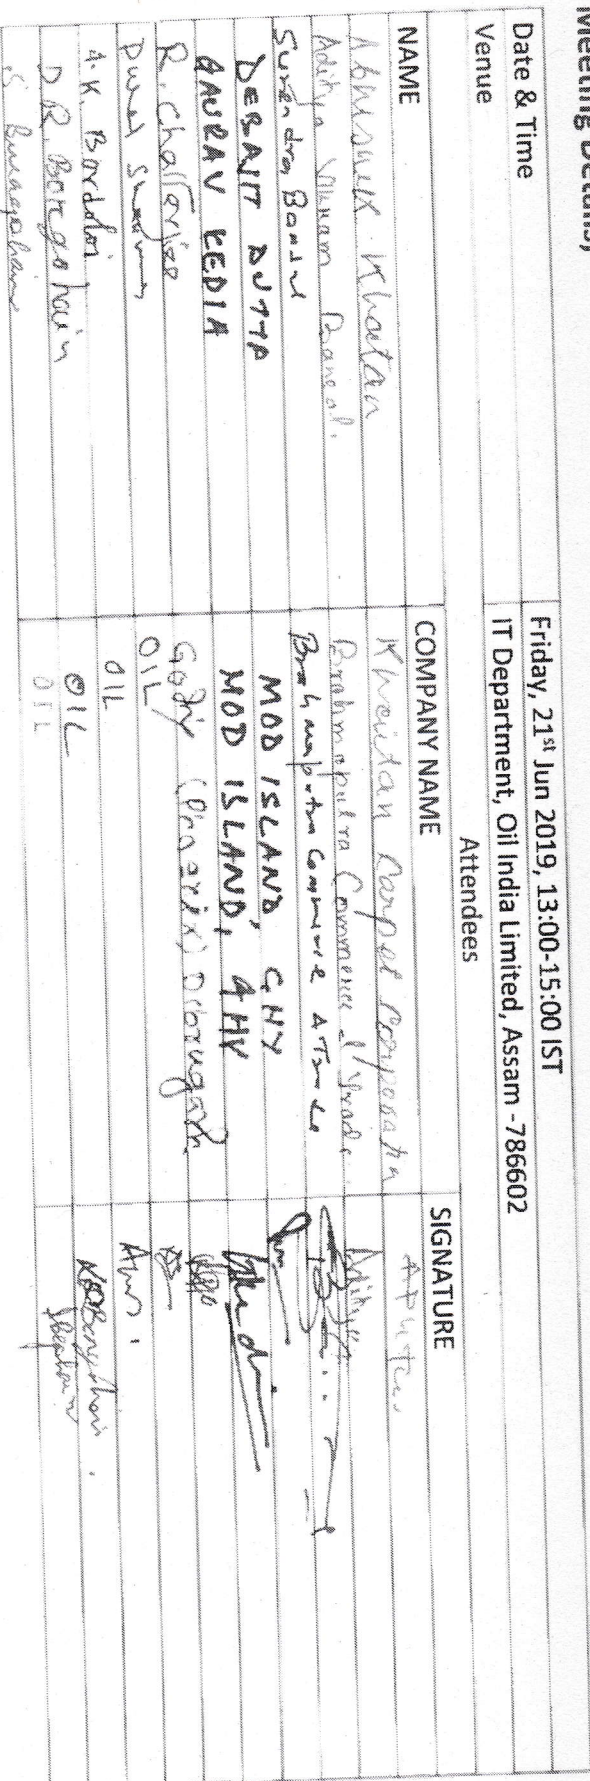 Meeting Details;
Date & Time Friday, 21st Jun 2019, 13:00-15:00 IST
Venue IT Department, Oil India Limited, Assam -786602
Attendees
NAME COMPANY NAME SIGNATURE
Abhishek Khaitan Khaitan Carpet Corporation
Aditya Vikram Bansal. Brahmaputra Commerce & Trade Aditya
Surendra Bansal Brahmaputra Commerce & Trade
DEBAJIT DUTTA MOD ISLAND, GHY
GAURAV KEDIA MOD ISLAND, GHY
R. Chatterjee Godrej Dibrugarh
OIL
A.K. Bordoloi OIL
D R Borgohain OIL
S Buragohain OIL